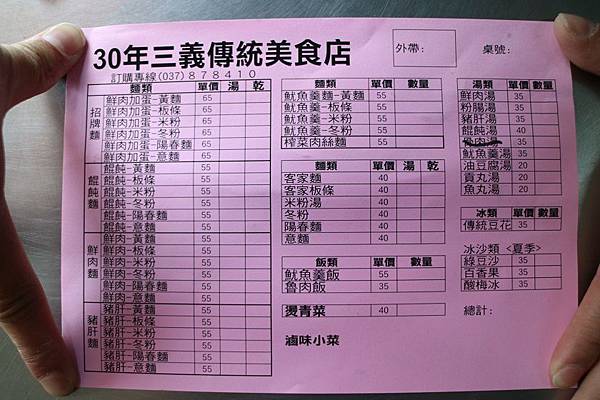 30年三義傳統美食店
訂購專線(037)878410
外帶:
桌號:
麵類 單價 湯 乾
招牌麵
鮮肉加蛋-黃麵 65
鮮肉加蛋-板條 65
鮮肉加蛋-米粉 65
鮮肉加蛋-冬粉 65
鮮肉加蛋-陽春麵 65
鮮肉加蛋-意麵 65
餛飩麵
餛飩-黃麵 55
餛飩-板條 55
餛飩-米粉 55
餛飩-冬粉 55
餛飩-陽春麵 55
餛飩-意麵 55
鮮肉麵
鮮肉-黃麵 55
鮮肉-板條 55
鮮肉-米粉 55
鮮肉-冬粉 55
鮮肉-陽春麵 55
鮮肉-意麵 55
豬肝麵
豬肝-黃麵 55
豬肝-板條 55
豬肝-米粉 55
豬肝-冬粉 55
豬肝-陽春麵 55
豬肝-意麵 55
麵類 單價 數量
魷魚羹麵-黃麵 55
魷魚羹-板條 55
魷魚羹-米粉 55
魷魚羹-冬粉 55
榨菜肉絲麵 55
麵類 單價 湯 乾
客家麵 40
客家板條 40
米粉湯 40
冬粉 40
陽春麵 40
意麵 40
飯類 單價 數量
魷魚羹飯 55
魯肉飯 35
燙青菜 40
滷味小菜
湯類 單價 數量
鮮肉湯 35
粉腸湯 35
豬肝湯 35
餛飩湯 40
35
魷魚羹湯 35
油豆腐湯 20
貢丸湯 20
魚丸湯 20
冰類 單價 數量
傳統豆花 35
冰沙類 <夏季>
綠豆沙 35
百香果 35
酸梅冰 35
總計: